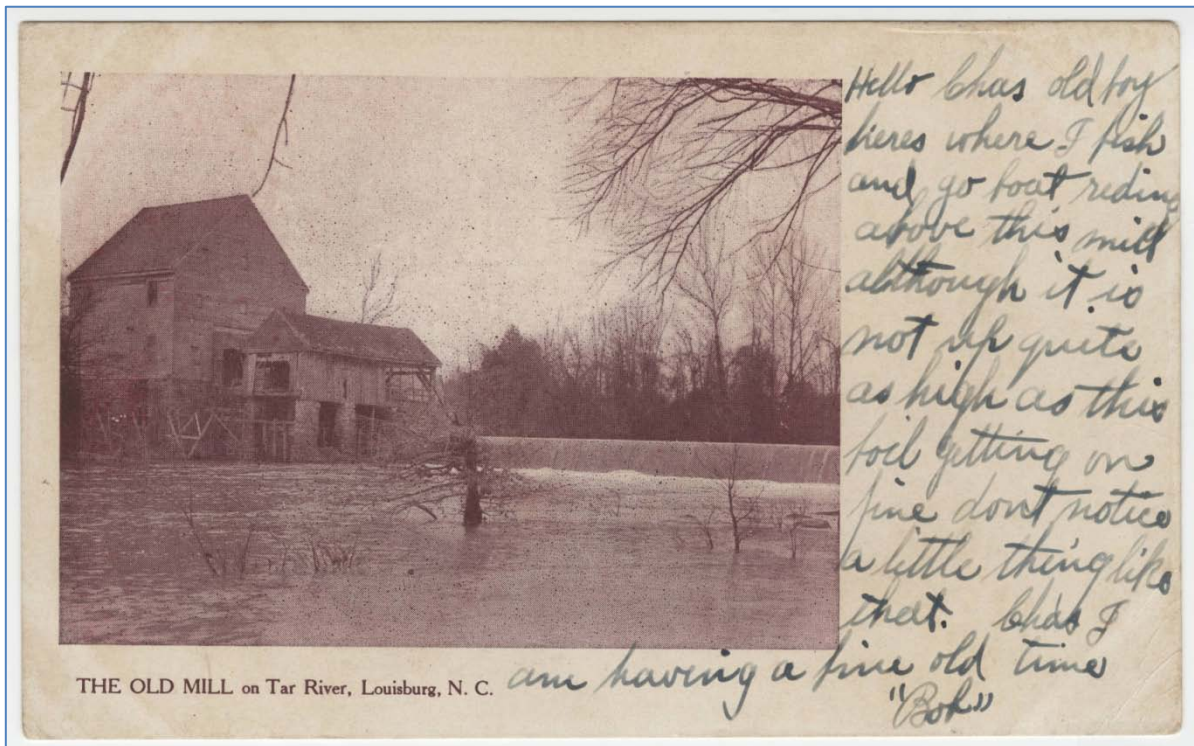 Hello Chas old boy
heres where I fish
and go boat riding
above this mill
although it is
not up quite
as high as this
boil getting on
fine dont notice
a little thing like
that. Chas I
am having a fine old time
"Bob"
THE OLD MILL on Tar River, Louisburg, N. C.